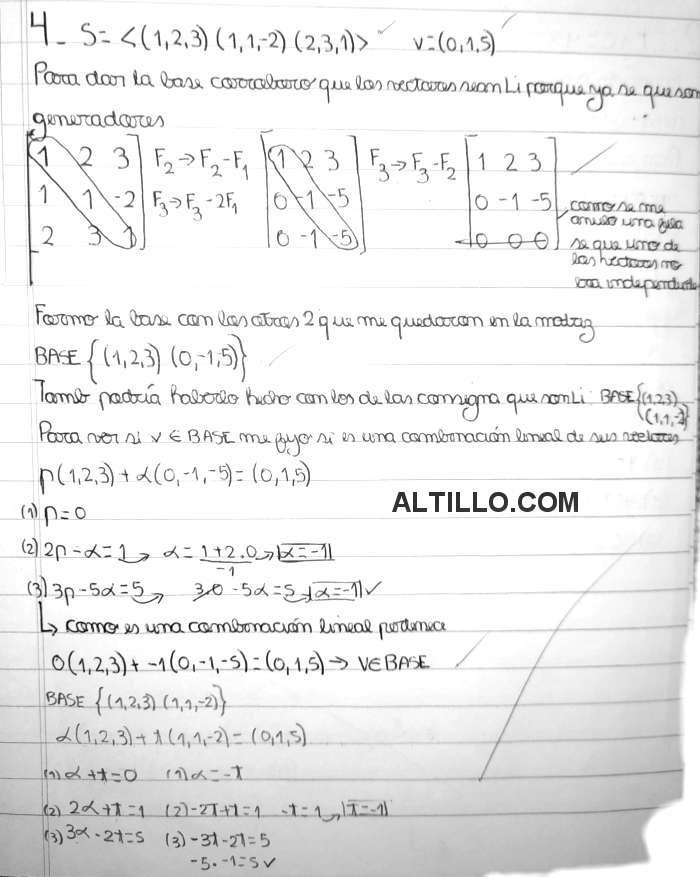 4- S= <(1,2,3) (1,1,-2) (2,3,1)> v=(0,1,5)
Para dar la base corroboro que los vectores sean Li porque ya se que son
generadores
1 2 3 F2→F2-F1 1 2 3 F3→F3-F2 1 2 3
1 1 -2 F3→F3-2F1 0 -1 -5 0 -1 -5
2 3 1 0 -1 -5 0 0 0
como se me
anulo una fila
se que uno de
los vectores no
era independiente
Formo la base con los otros 2 que me quedaron en la matriz
BASE {(1,2,3) (0,-1,5)}
Tamb podría haberlo hecho con los de las consigna que son Li BASE {(1,2,3)
(1,1,-2)}
Para ver si v ∈ BASE me fijo si es una combinación lineal de sus vectores
p(1,2,3) + α(0,-1,-5) = (0,1,5)
ALTILLO.COM
(1) p=0
(2) 2p-α=1 → α=1+2.0/-1 → α=-1
(3) 3p-5α=5 → 3.0-5α=5 → α=-1 ✓
↳ como es una combonación lineal
0(1,2,3)+-1(0,-1,-5)=(0,1,5) → V∈BASE
BASE {(1,2,3) (1,1,-2)}
α(1,2,3)+t(1,1,-2)=(0,1,5)
(1) α+t=0 (1) α=-t
(2) 2α+t=1 (2) -2t+t=1 -t=1 → t=-1
(3) 3α-2t=5 (3) -3t-2t=5
-5.-1=5 ✓